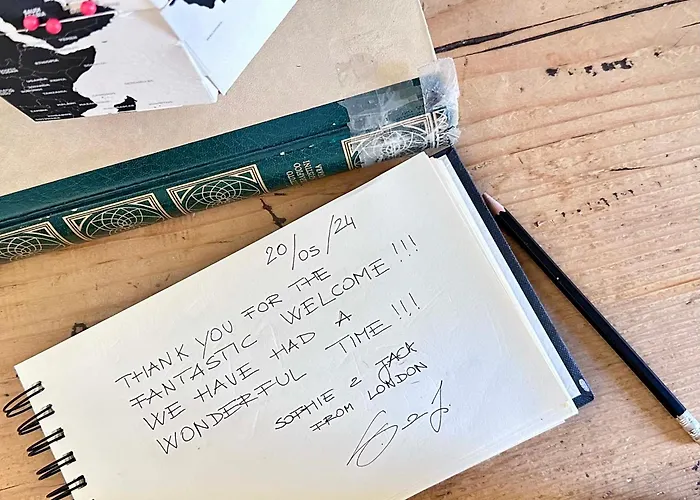 20/05/24
THANK YOU FOR THE
FANTASTIC WELCOME!!!
WE HAVE HAD A
WONDERFUL TIME!!!
SOPHIE & JACK
FROM LONDON
S & J.